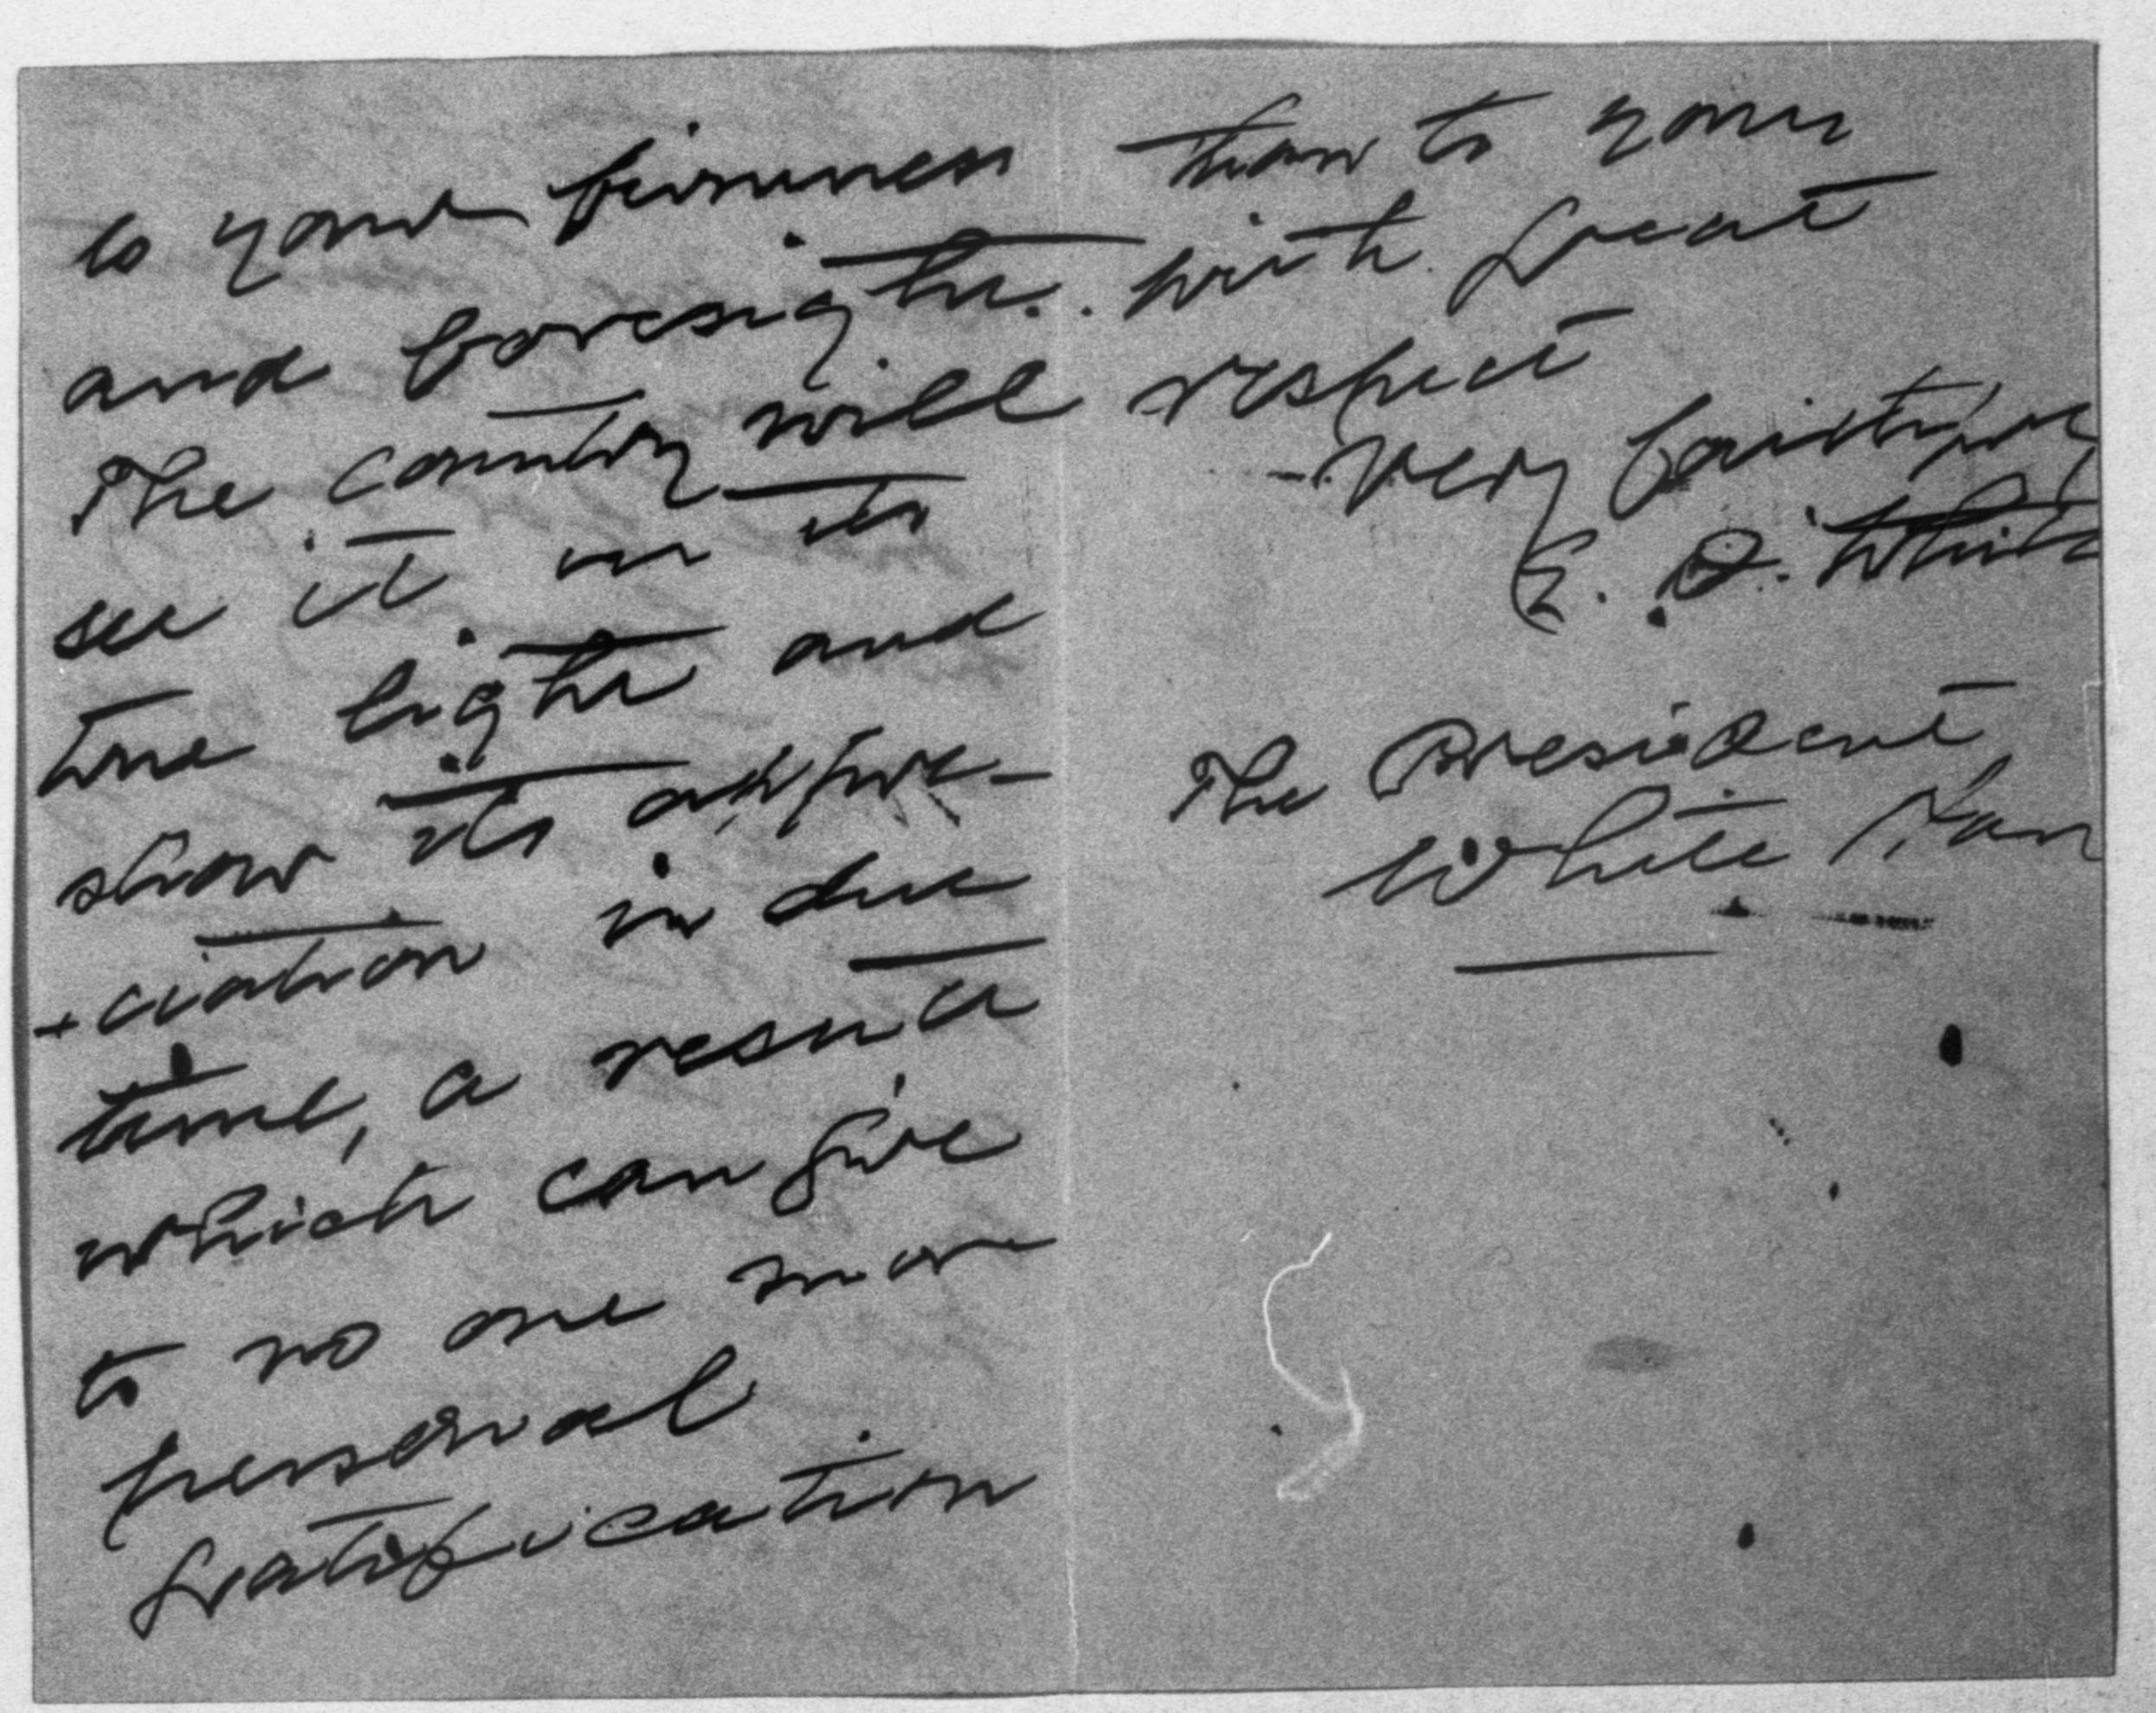 to your firmness
and foresight.
The country will
see it in its
true light and
show its appre-
-ciation in due
time, a result
which can give
to no one more
personal
gratification
than to your
with great
respect
Very faithfully
E. D. White
The President
White